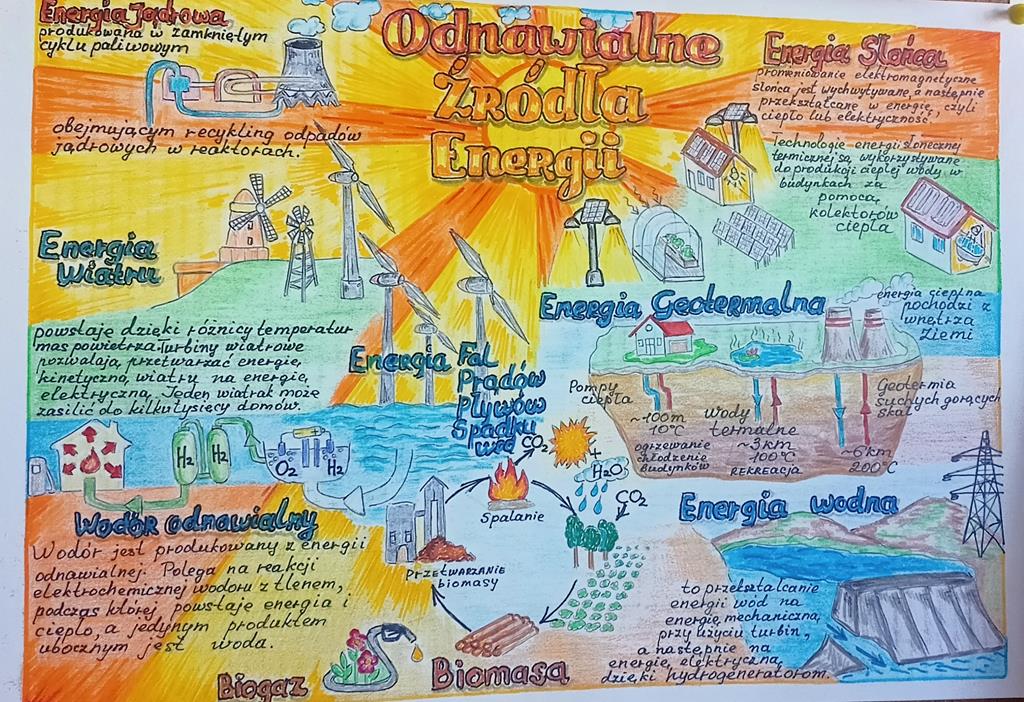 Odnawialne
Źródła
Energii
Energia Jądrowa
produkowana w zamkniętym
cyklu paliwowym
obejmującym recykling odpadów
jądrowych w reaktorach.
Energia Słońca
promieniowanie elektromagnetyczne
słońca jest wychwytywane, a następnie
przekształcane w energię, czyli
ciepło lub elektryczność.
Technologie energii słonecznej
termicznej są wykorzystywane
do produkcji ciepłej wody w
budynkach za
pomocą
kolektorów
ciepła
Energia
Wiatru
powstaje dzięki różnicy temperatur
mas powietrza. Turbiny wiatrowe
pozwalają przetwarzać energię
kinetyczną wiatru na energię
elektryczną. Jeden wiatrak może
zasilić do kilku tysięcy domów.
Energia Fal
Prądów
Pływów
Spadku
wód
Energia Geotermalna
energia cieplna
pochodzi z
wnętrza
Ziemi
Pompy
ciepła
~100m
10°C
ogrzewanie
chłodzenie
budynków
Wody
termalne
~3km
100°C
REKREACJA
Geotermia
suchych gorących
skał
~6km
200°C
H₂
H₂
O₂
H₂
Wodór odnawialny
Wodór jest produkowany z energii
odnawialnej. Polega na reakcji
elektrochemicznej wodoru z tlenem,
podczas której powstaje energia i
ciepło, a jedynym produktem
ubocznym jest woda.
CO₂
+
H₂O
CO₂
Spalanie
PRZETWARZANIE
biomasy
Biogaz
Biomasa
Energia wodna
to przekształcanie
energii wód na
energię mechaniczną
przy użyciu turbin,
a następnie na
energię elektryczną
dzięki hydrogeneratorom.